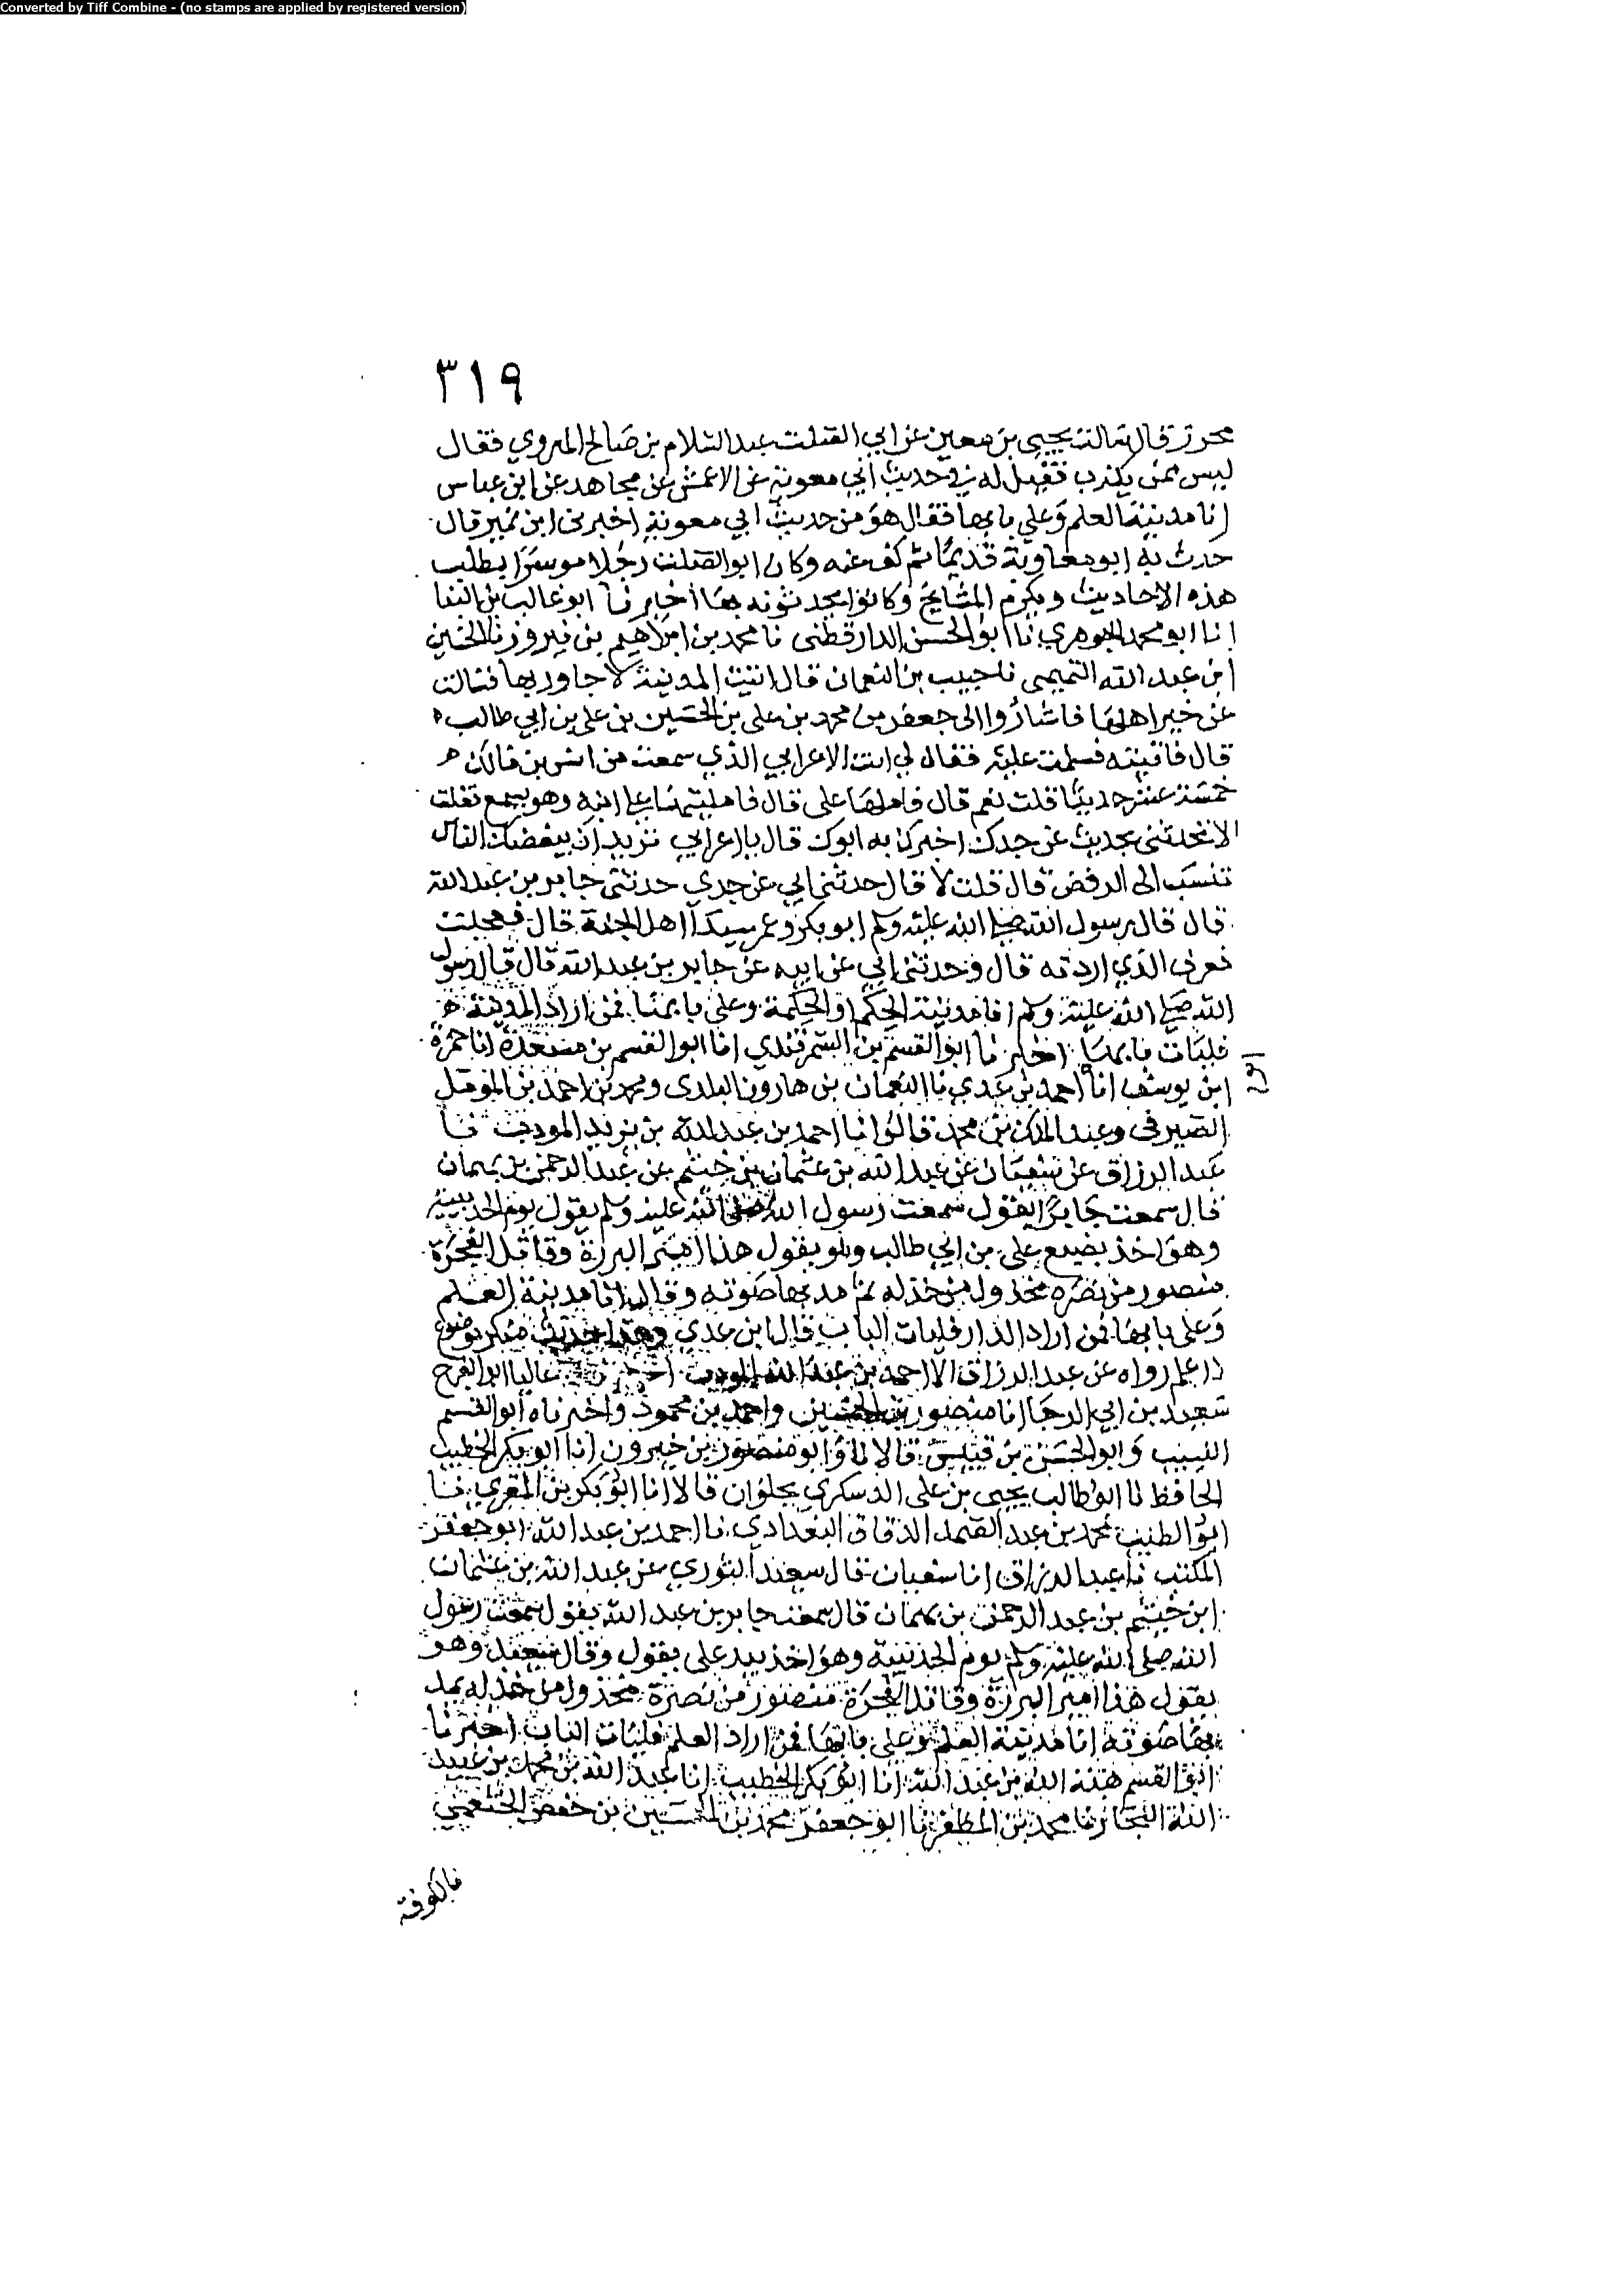 Converted by Tiff Combine - (no stamps are applied by registered version)
٣١٩
محرز قال سالت يحيى بن معين عن ابي الصلت عبد السلام بن صالح الهروي فقال
ليس ممن يكذب فقيل له في حديث ابي معوية عن الاعمش عن مجاهد عن ابن عباس
انا مدينة العلم وعلي بابها فقال هو من حديث ابي معوية اخبرني ابن نمير قال
حدث به ابو معاوية قديما ثم كف عنه وكان ابو الصلت رجلا موسرا يطلب
هذه الاحاديث ويكرم المشايخ وكانوا يحدثونه بها اخبرنا ابو غالب بن البنا
انا ابو محمد الجوهري نا ابو الحسن الدارقطنى نا محمد بن ابراهيم بن نيروز نا الحسين
ابن عبد الله التميمى نا حبيب بن النعمان قال اتيت المدينة لاجاور بها فسالت
عن خير اهلها فاشاروا الى جعفر بن محمد بن على بن الحسين بن على بن ابي طالب
قال فاتيته فسلمت عليه فقال لي انت الاعرابي الذي سمعت من انس بن مالك
خمسة عشر حديثا قلت نعم قال فاملها على قال فامليتها على ابنه وهو يسمع فقلت
الا تحدثنى بحديث عن جدك اخبرك به ابوك قال يا اعرابي تريد ان يبغضك الناس
تنسب الى الرفض قال قلت لا قال حدثني ابي عن جدي حدثنى جابر بن عبد الله
قال قال رسول الله صلى الله عليه وسلم ابو بكر وعمر سيدا اهل الجنة قال فعجلت
فعرف الذي اردته قال وحدثنى ابي عن ابيه عن جابر بن عبد الله قال قال رسول
الله صلى الله عليه وسلم انا مدينة الحكم او الحكمة وعلى بابها فمن اراد المدينة
فليات بابها اخبرنا ابو القسم بن السمرقندي انا ابو القسم بن مسعدة انا حمزة
ابن يوسف انا احمد بن عدي نا النعمان بن هارون البلدى ومحمد بن احمد بن المومل
الصيرفى وعبد الملك بن محمد قالوا نا احمد بن عبد الله بن يزيد المودب نا
عبد الرزاق عن سفيان عن عبد الله بن عثمان بن خثيم عن عبد الرحمن بن بهمان
قال سمعت جابرا يقول سمعت رسول الله صلى الله عليه وسلم يقول يوم الحديبية
وهو اخذ بضبع على بن ابي طالب وهو يقول هذا امير البررة وقاتل الفجرة
منصور من نصره مخذول من خذله ثم مد بها صوته وقال انا مدينة العلم
وعلى بابها فمن اراد الدار فليات الباب قال ابن عدي وهذا حديث منكر موضوع
لا اعلم رواه عن عبد الرزاق الا احمد بن عبد الله المودب عاليا ابو الفرج
سعيد بن ابي الرجا انا منصور بن الحسين واحمد بن محمود واخبرناه ابو القسم
النسيب وابو الحسن بن قبيس قالا نا وابو منصور بن خيرون انا ابو بكر الخطيب
الحافظ نا ابو طالب يحيى بن على الدسكري بحلوان قالا انا ابو بكر بن المقري نا
ابو الطيب محمد بن عبد الصمد الدقاق البغدادي نا احمد بن عبد الله ابو جعفر
المكتب نا عبد الرزاق انا سفيان قال سعيد الثوري عن عبد الله بن عثمان
ابن خيثم بن عبد الرحمن بن بهمان قال سمعت جابر بن عبد الله يقول سمعت رسول
الله صلى الله عليه وسلم يوم الحديبية وهو اخذ بيد على يقول وقال سعيد وهو
يقول هذا امير البررة وقاتل الفجرة منصور من نصره مخذول من خذله يمد
بها صوته انا مدينة العلم وعلى بابها فمن اراد العلم فليات الباب اخبرنا
ابو القسم هبة الله بن عبد الله انا ابو بكر الخطيب انا عبد الله بن محمد بن عبيد
الله النجار نا محمد بن المظفر نا ابو جعفر محمد بن الحسين بن حفص الخثعمي
بالكوفة